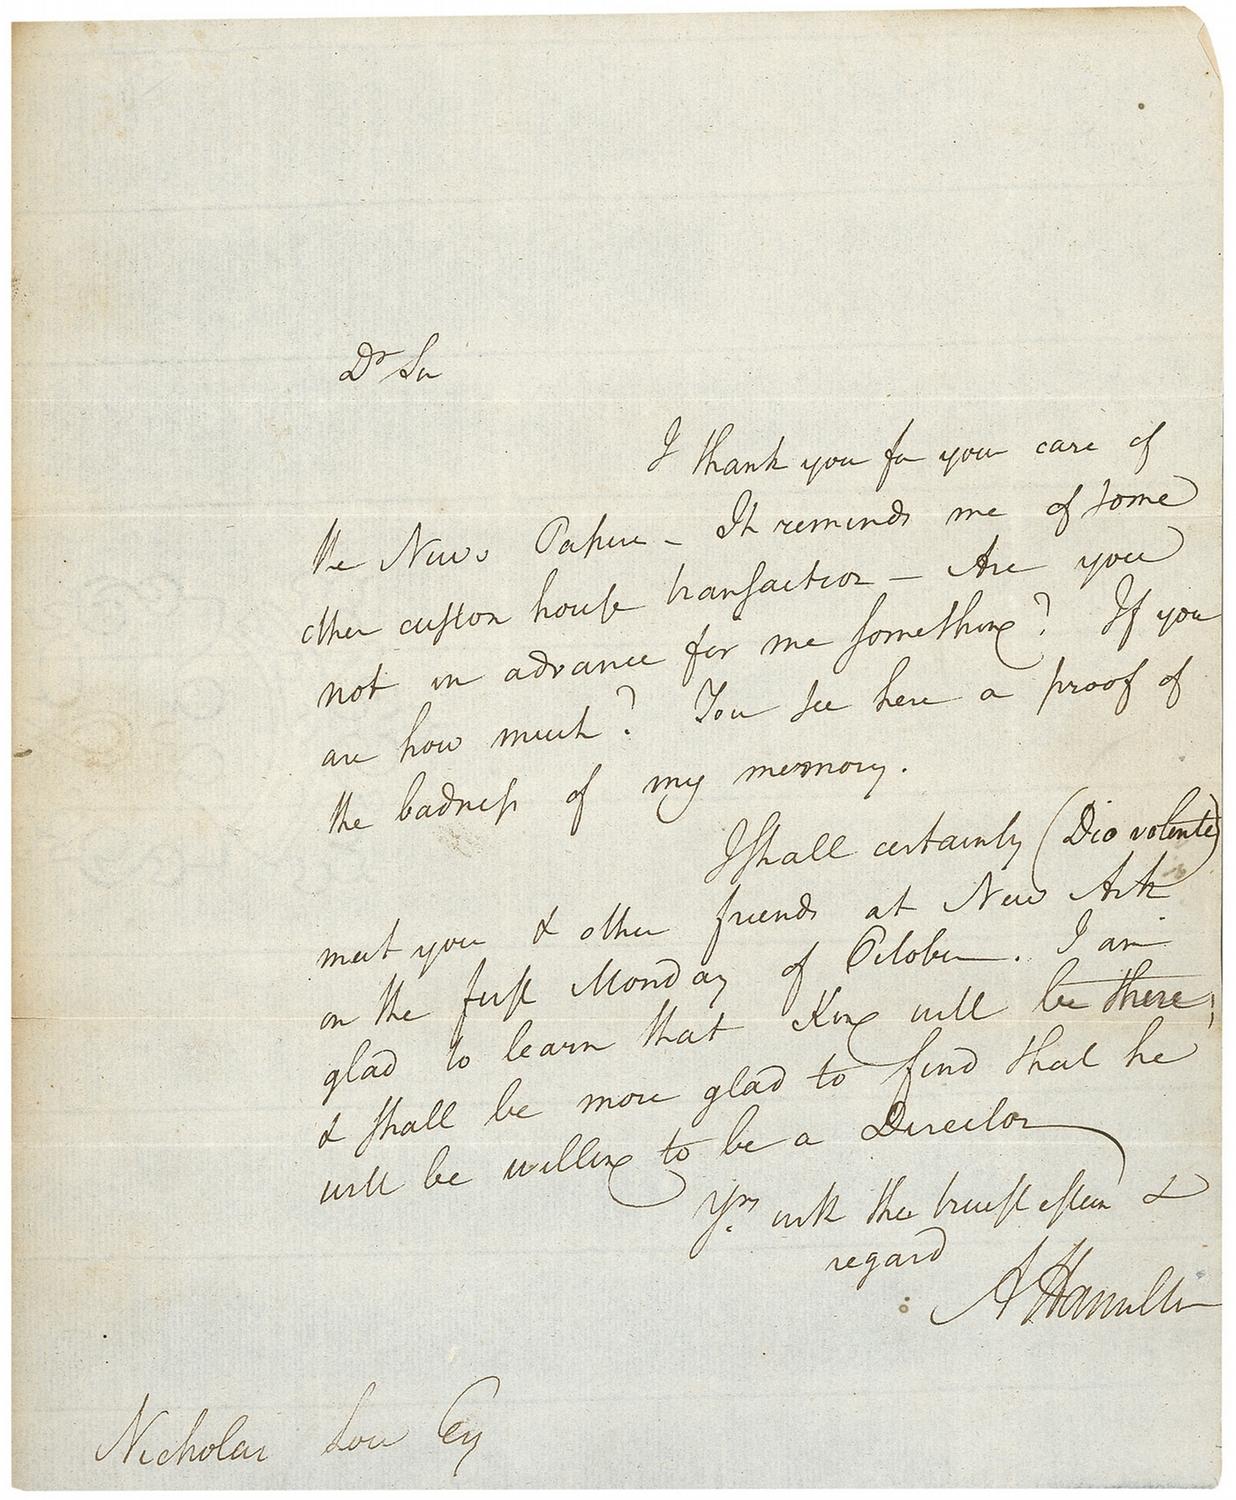 Dr Sir
I thank you for your care of
the News Papers — It reminds me of some
other custom house transaction — Are you
not in advance for me something? If you
are how much? You see here a proof of
the badness of my memory.
I shall certainly (Dio volente)
meet you & other friends at New Ark
on the first Monday of October. I am
glad to learn that King will be there;
& shall be more glad to find that he
will be willing to be a Director
Yrs. with the truest esteem &
regard
A Hamilton
Nicholas Low Esq